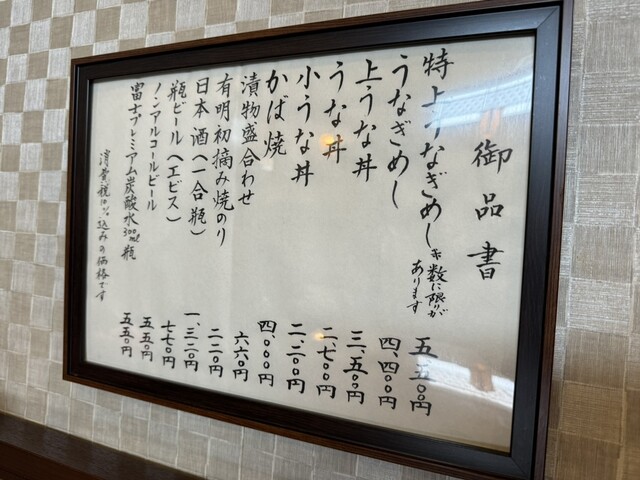 御品書
特上うなぎめし ※数に限りが
あります
五、五〇〇円
うなぎめし 四、四〇〇円
上うな丼 三、五〇〇円
うな丼 二、七〇〇円
小うな丼 二、二〇〇円
かば焼 四、〇〇〇円
漬物盛合わせ 六六〇円
有明初摘み焼のり 二二〇円
日本酒(一合瓶) 一、三二〇円
瓶ビール(エビス) 七七〇円
ノンアルコールビール 五五〇円
富士プレミアム炭酸水300ml瓶 五五〇円
消費税10%込みの価格です